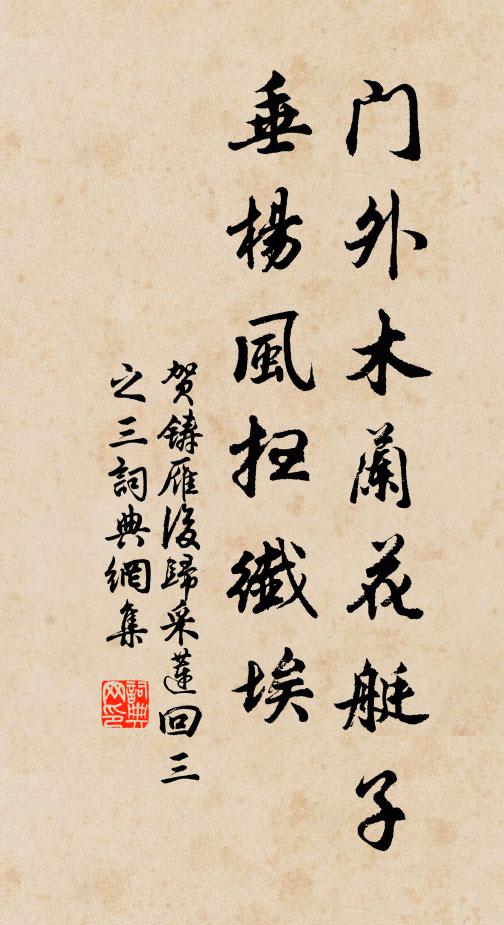 门外木蘭花艇子
垂楊風扫纖埃
贺鑄雁後歸采蓮回三
之三詞典網集
詞典网印